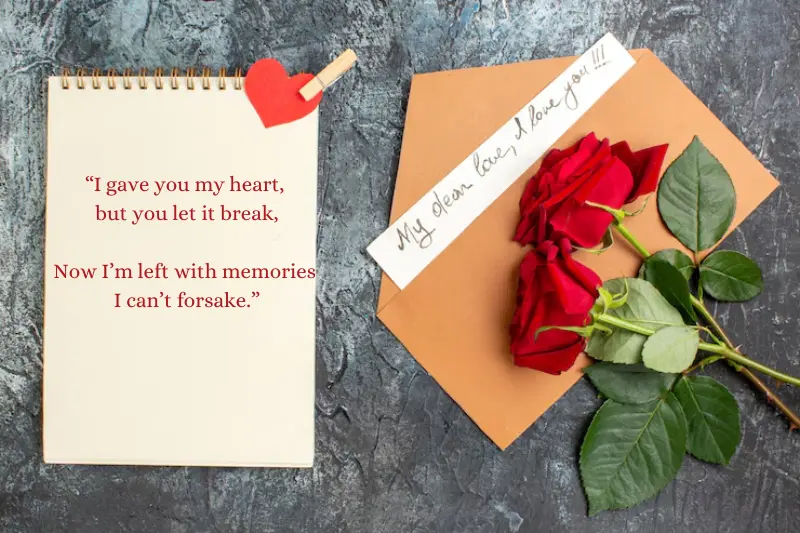 “I gave you my heart,
but you let it break,
Now I’m left with memories
I can’t forsake.”
My dear love, I love you!!!